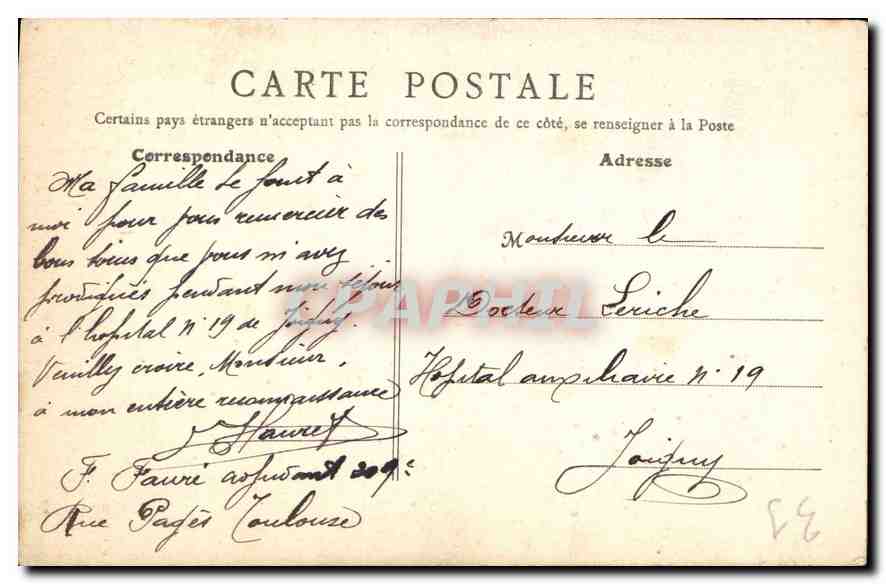 CARTE POSTALE
Certains pays étrangers n'acceptant pas la correspondance de ce côté, se renseigner à la Poste
Correspondance
Ma famille se joint à
moi pour vous remercier des
bons soins que vous m'avez
prodigués pendant mon séjour
à l'hopital n° 19 de Joigny.
Veuillez croire, Monsieur,
à mon entière reconnaissance
F. Fauré adjudant 209e
Rue Pagès Toulouse
Adresse
Monsieur le
Docteur Leriche
Hopital auxiliaire n° 19
Joigny
CPAPHIL